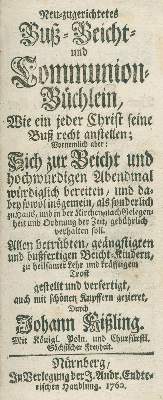 Neu-zugerichtetes
Buß-Beicht-
und
Communion-
Büchlein,
Wie ein jeder Christ seine
Buß recht anstellen;
Vornemlich aber:
Sich zur Beicht und
hochwürdigen Abendmal
würdiglich bereiten, und da-
bey sowol insgemein, als sonderlich
zu Haus, und in der Kirchen, nach Gelegen-
heit und Ordnung der Zeit, gebührlich
verhalten soll.
Allen betrübten, geängstigten
und bußfertigen Beicht-Kindern,
zu heilsamer Lehr und kräfftigem
Trost
gestellt und verfertigt,
auch mit schönen Kupffern gezieret,
Durch
Johann Kißling.
Mit Königl. Poln. und Churfürstl.
Sächsischer Freyheit.
Nürnberg,
In Verlegung der J. Andr. Endte-
rischen Handlung. 1760.